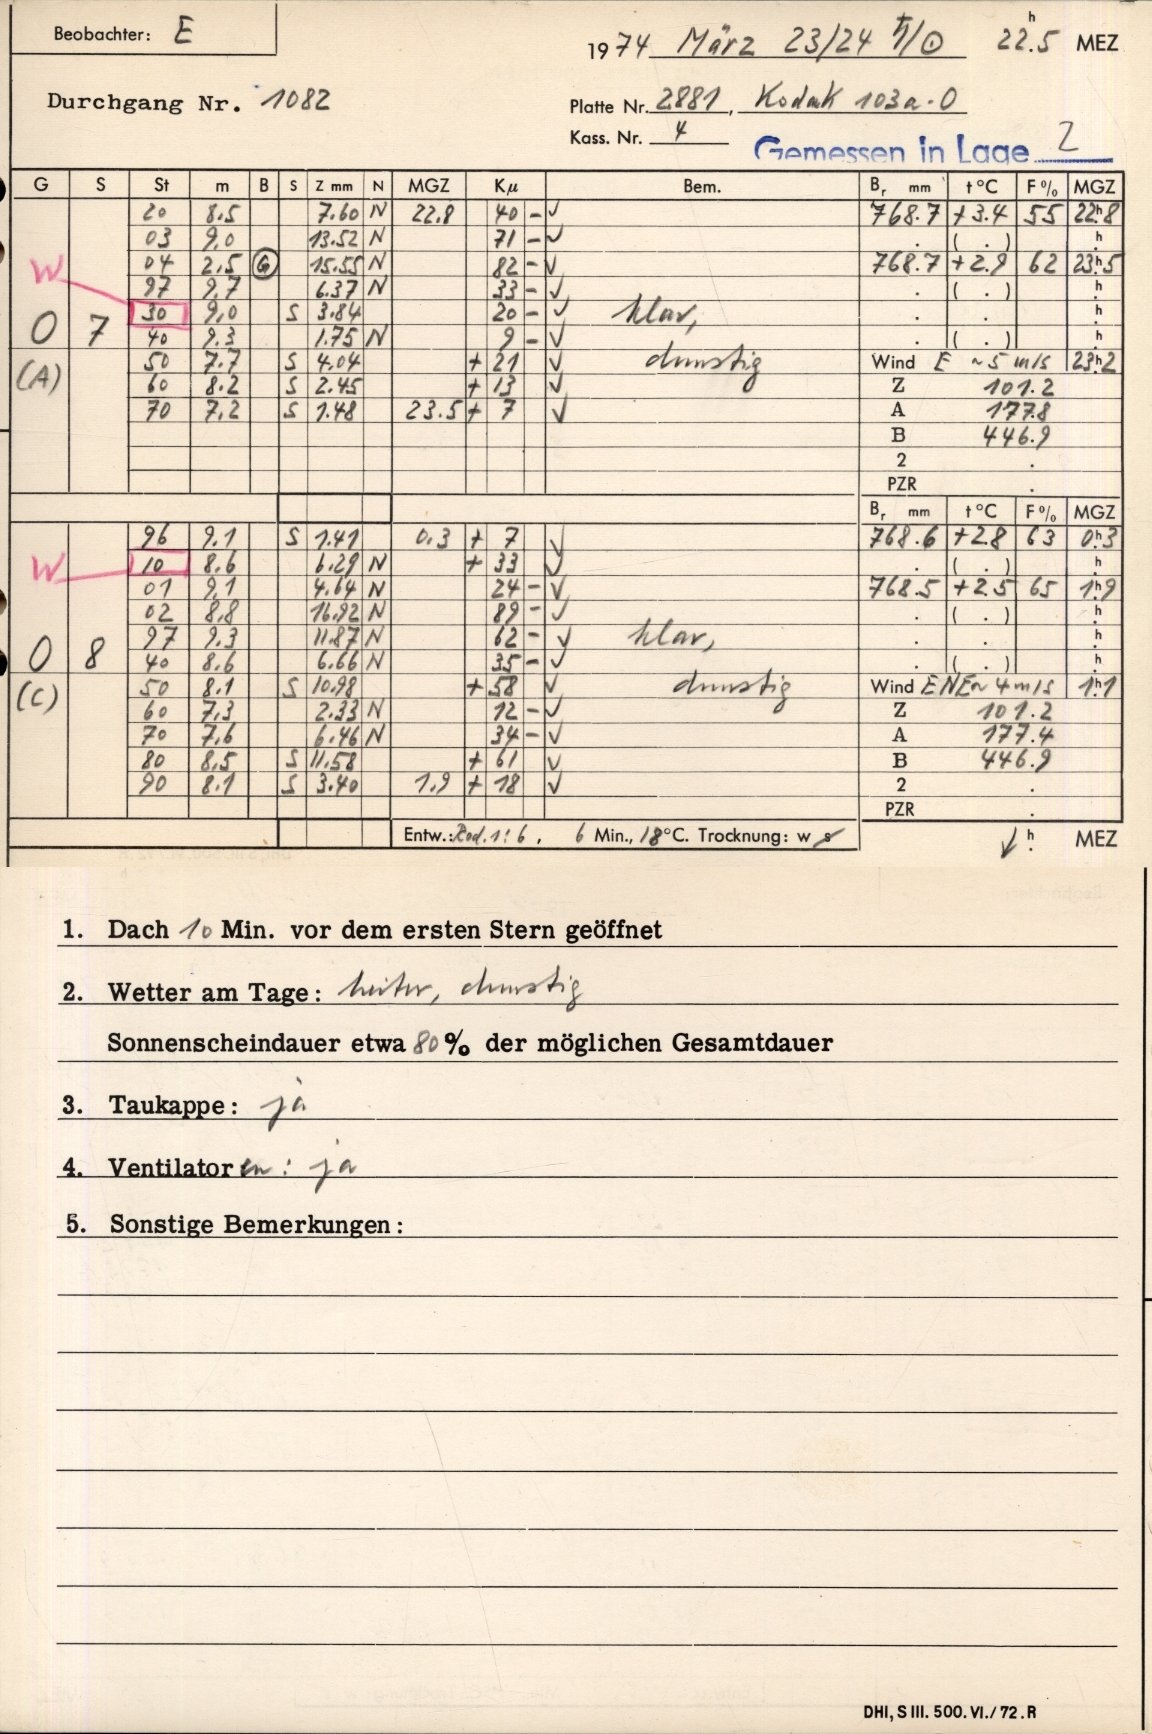 Beobachter: E
1974 März 23/24 ♄/☉ 22.5 h MEZ
Durchgang Nr. 1082
Platte Nr. 2881, Kodak 103a-O
Kass. Nr. 4
Gemessen in Lage 2
G S St m B S Z mm N MGZ Kμ Bem. Br mm t °C F % MGZ
20 8.5 7.60 N 22.8 40 - ✓ 768.7 +3.4 55 22h8
03 9.0 13.52 N 71 - ✓ . ( . ) h
W 04 2.5 G 15.55 N 82 - ✓ 768.7 +2.9 62 23h5
97 9.7 6.37 N 33 - ✓ . ( . ) h
0 7 30 9.0 S 3.84 20 - ✓ klar, . . h
40 9.3 1.75 N 9 - ✓ . ( . ) h
(A) 50 7.7 S 4.04 + 21 ✓ dunstig Wind E ~5 m/s 23h2
60 8.2 S 2.45 + 13 ✓ Z 101.2
70 7.2 S 1.48 23.5 + 7 ✓ A 177.8
B 446.9
2 .
PZR .
Br mm t °C F % MGZ
96 9.1 S 1.41 0.3 + 7 ✓ 768.6 +2.8 63 0h3
W 10 8.6 6.29 N + 33 ✓ . ( . ) h
01 9.1 4.64 N 24 - ✓ 768.5 +2.5 65 1h9
02 8.8 16.92 N 89 - ✓ . ( . ) h
97 9.3 11.87 N 62 - ✓ klar, . . h
0 8 40 8.6 6.66 N 35 - ✓ . ( . ) h
(C) 50 8.1 S 10.98 + 58 ✓ dunstig Wind ENE ~ 4 m/s 1h1
60 7.3 2.33 N 12 - ✓ Z 101.2
70 7.6 6.46 N 34 - ✓ A 177.4
80 8.5 S 11.58 + 61 ✓ B 446.9
90 8.1 S 3.40 1.9 + 18 ✓ 2 .
PZR .
Entw.: Rod. 1:6, 6 Min., 18°C. Trocknung: w s h MEZ
1. Dach 10 Min. vor dem ersten Stern geöffnet
2. Wetter am Tage: heiter, dunstig
Sonnenscheindauer etwa 80% der möglichen Gesamtdauer
3. Taukappe: ja
4. Ventilatoren: ja
5. Sonstige Bemerkungen:
DHI, S III. 500. VI./72. R